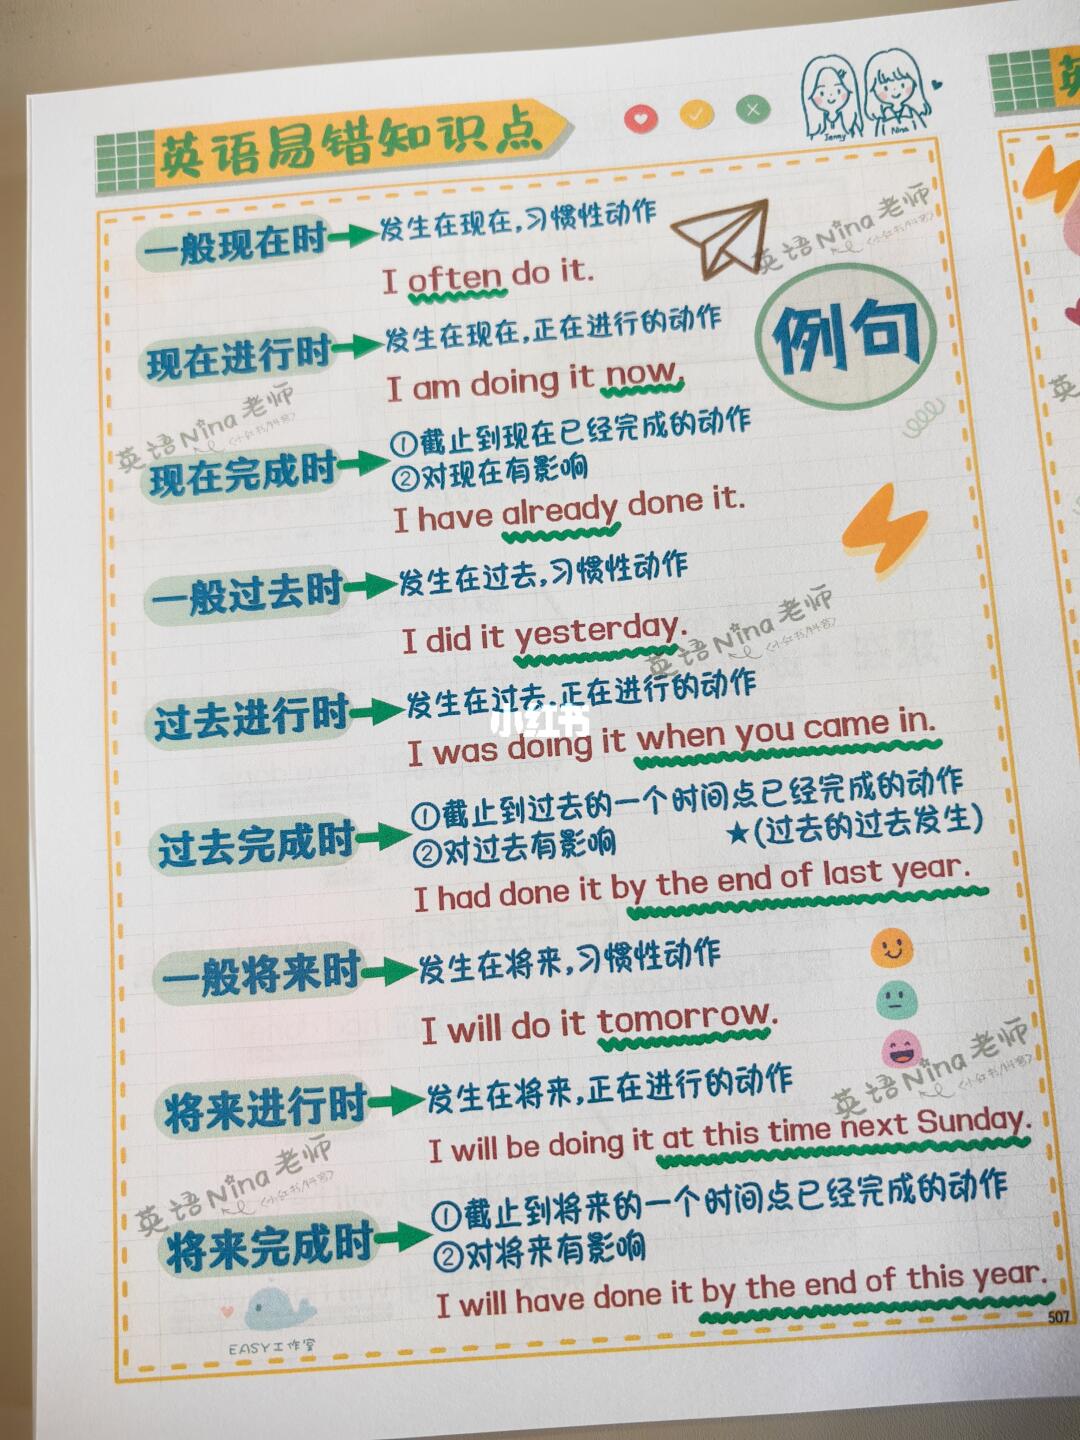 英语易错知识点
Jenny Nina
一般现在时 发生在现在,习惯性动作
I often do it.
英语Nina老师
<小红书/抖音>
例句
现在进行时 发生在现在,正在进行的动作
I am doing it now.
英语Nina老师
<小红书/抖音>
现在完成时 ①截止到现在已经完成的动作
②对现在有影响
I have already done it.
一般过去时 发生在过去,习惯性动作
I did it yesterday.
英语Nina老师
<小红书/抖音>
过去进行时 发生在过去,正在进行的动作
小红书
I was doing it when you came in.
过去完成时 ①截止到过去的一个时间点已经完成的动作
②对过去有影响 ★(过去的过去发生)
I had done it by the end of last year.
一般将来时 发生在将来,习惯性动作
I will do it tomorrow.
英语Nina老师
<小红书/抖音>
将来进行时 发生在将来,正在进行的动作
I will be doing it at this time next Sunday.
英语Nina老师
<小红书/抖音>
将来完成时 ①截止到将来的一个时间点已经完成的动作
②对将来有影响
I will have done it by the end of this year.
507
EASY工作室
英
英